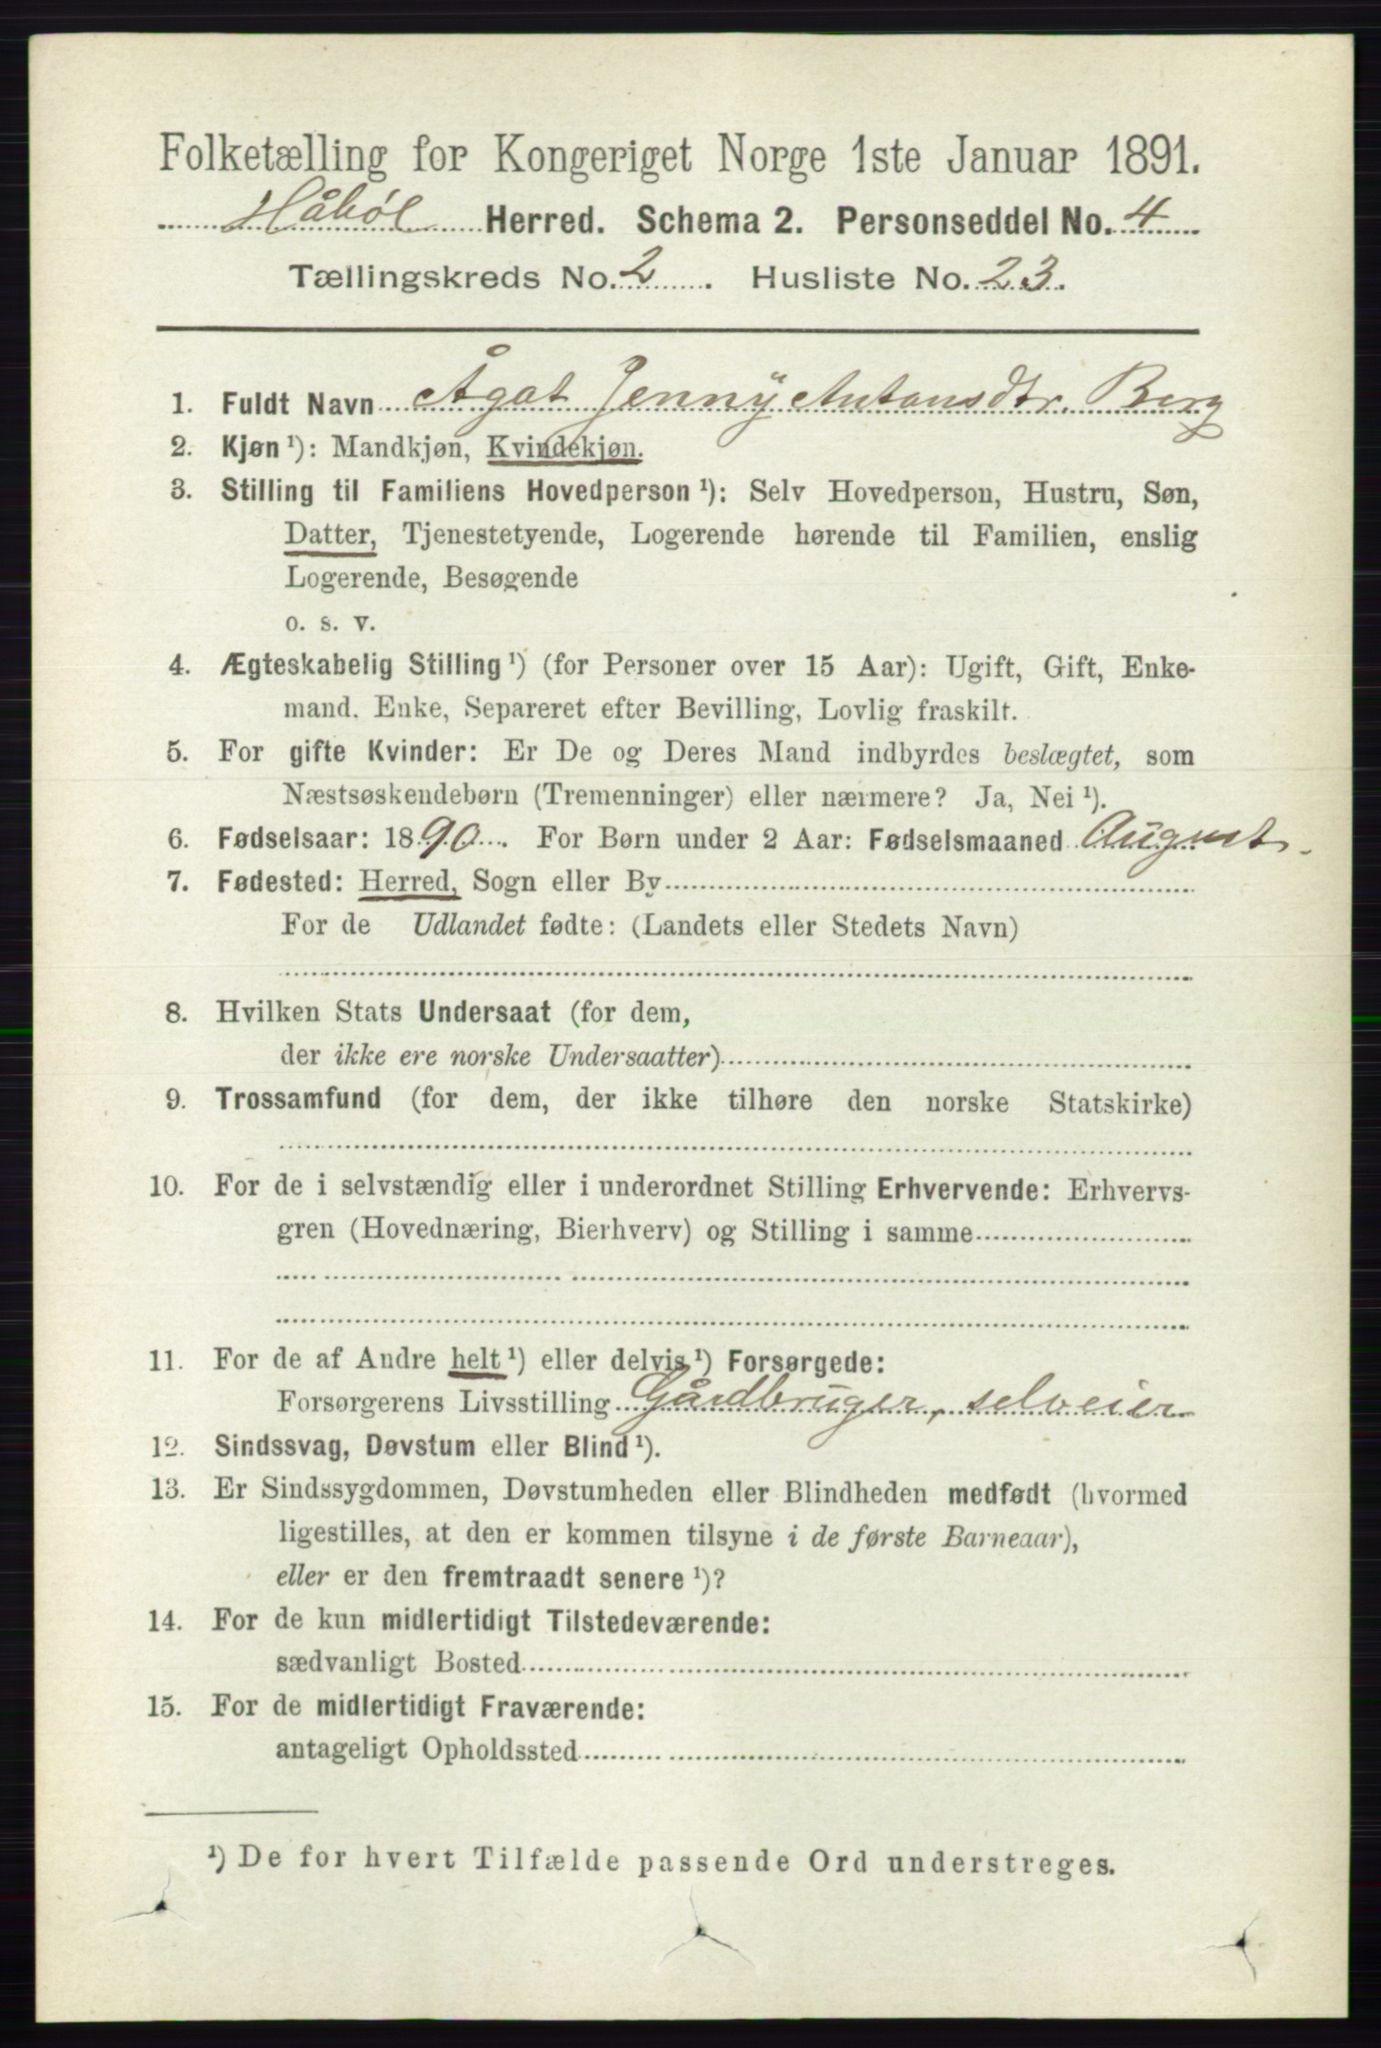 Folketælling for Kongeriget Norge 1ste Januar 1891.
Håbøl Herred. Schema 2. Personseddel No. 4
Tællingskreds No. 2. Husliste No. 23.
1. Fuldt Navn Ågat Jenny Antonsdtr. Berg
2. Kjøn ¹): Mandkjøn, Kvindekjøn.
3. Stilling til Familiens Hovedperson ¹): Selv Hovedperson, Hustru, Søn,
Datter, Tjenestetyende, Logerende hørende til Familien, enslig
Logerende, Besøgende
o. s. v.
4. Ægteskabelig Stilling ¹) (for Personer over 15 Aar): Ugift, Gift, Enke-
mand. Enke, Separeret efter Bevilling, Lovlig fraskilt.
5. For gifte Kvinder: Er De og Deres Mand indbyrdes beslægtet, som
Næstsøskendebørn (Tremenninger) eller nærmere? Ja, Nei ¹).
6. Fødselsaar: 1890. For Børn under 2 Aar: Fødselsmaaned August.
7. Fødested: Herred, Sogn eller By
For de Udlandet fødte: (Landets eller Stedets Navn)
8. Hvilken Stats Undersaat (for dem,
der ikke ere norske Undersaatter)
9. Trossamfund (for dem, der ikke tilhøre den norske Statskirke)
10. For de i selvstændig eller i underordnet Stilling Erhvervende: Erhvervs-
gren (Hovednæring, Bierhverv) og Stilling i samme
11. For de af Andre helt ¹) eller delvis ¹) Forsørgede:
Forsørgerens Livsstilling Gårdbruger, selveier
12. Sindssvag, Døvstum eller Blind ¹).
13. Er Sindssygdommen, Døvstumheden eller Blindheden medfødt (hvormed
ligestilles, at den er kommen tilsyne i de første Barneaar),
eller er den fremtraadt senere ¹)?
14. For de kun midlertidigt Tilstedeværende:
sædvanligt Bosted
15. For de midlertidigt Fraværende:
antageligt Opholdssted
¹) De for hvert Tilfælde passende Ord understreges.